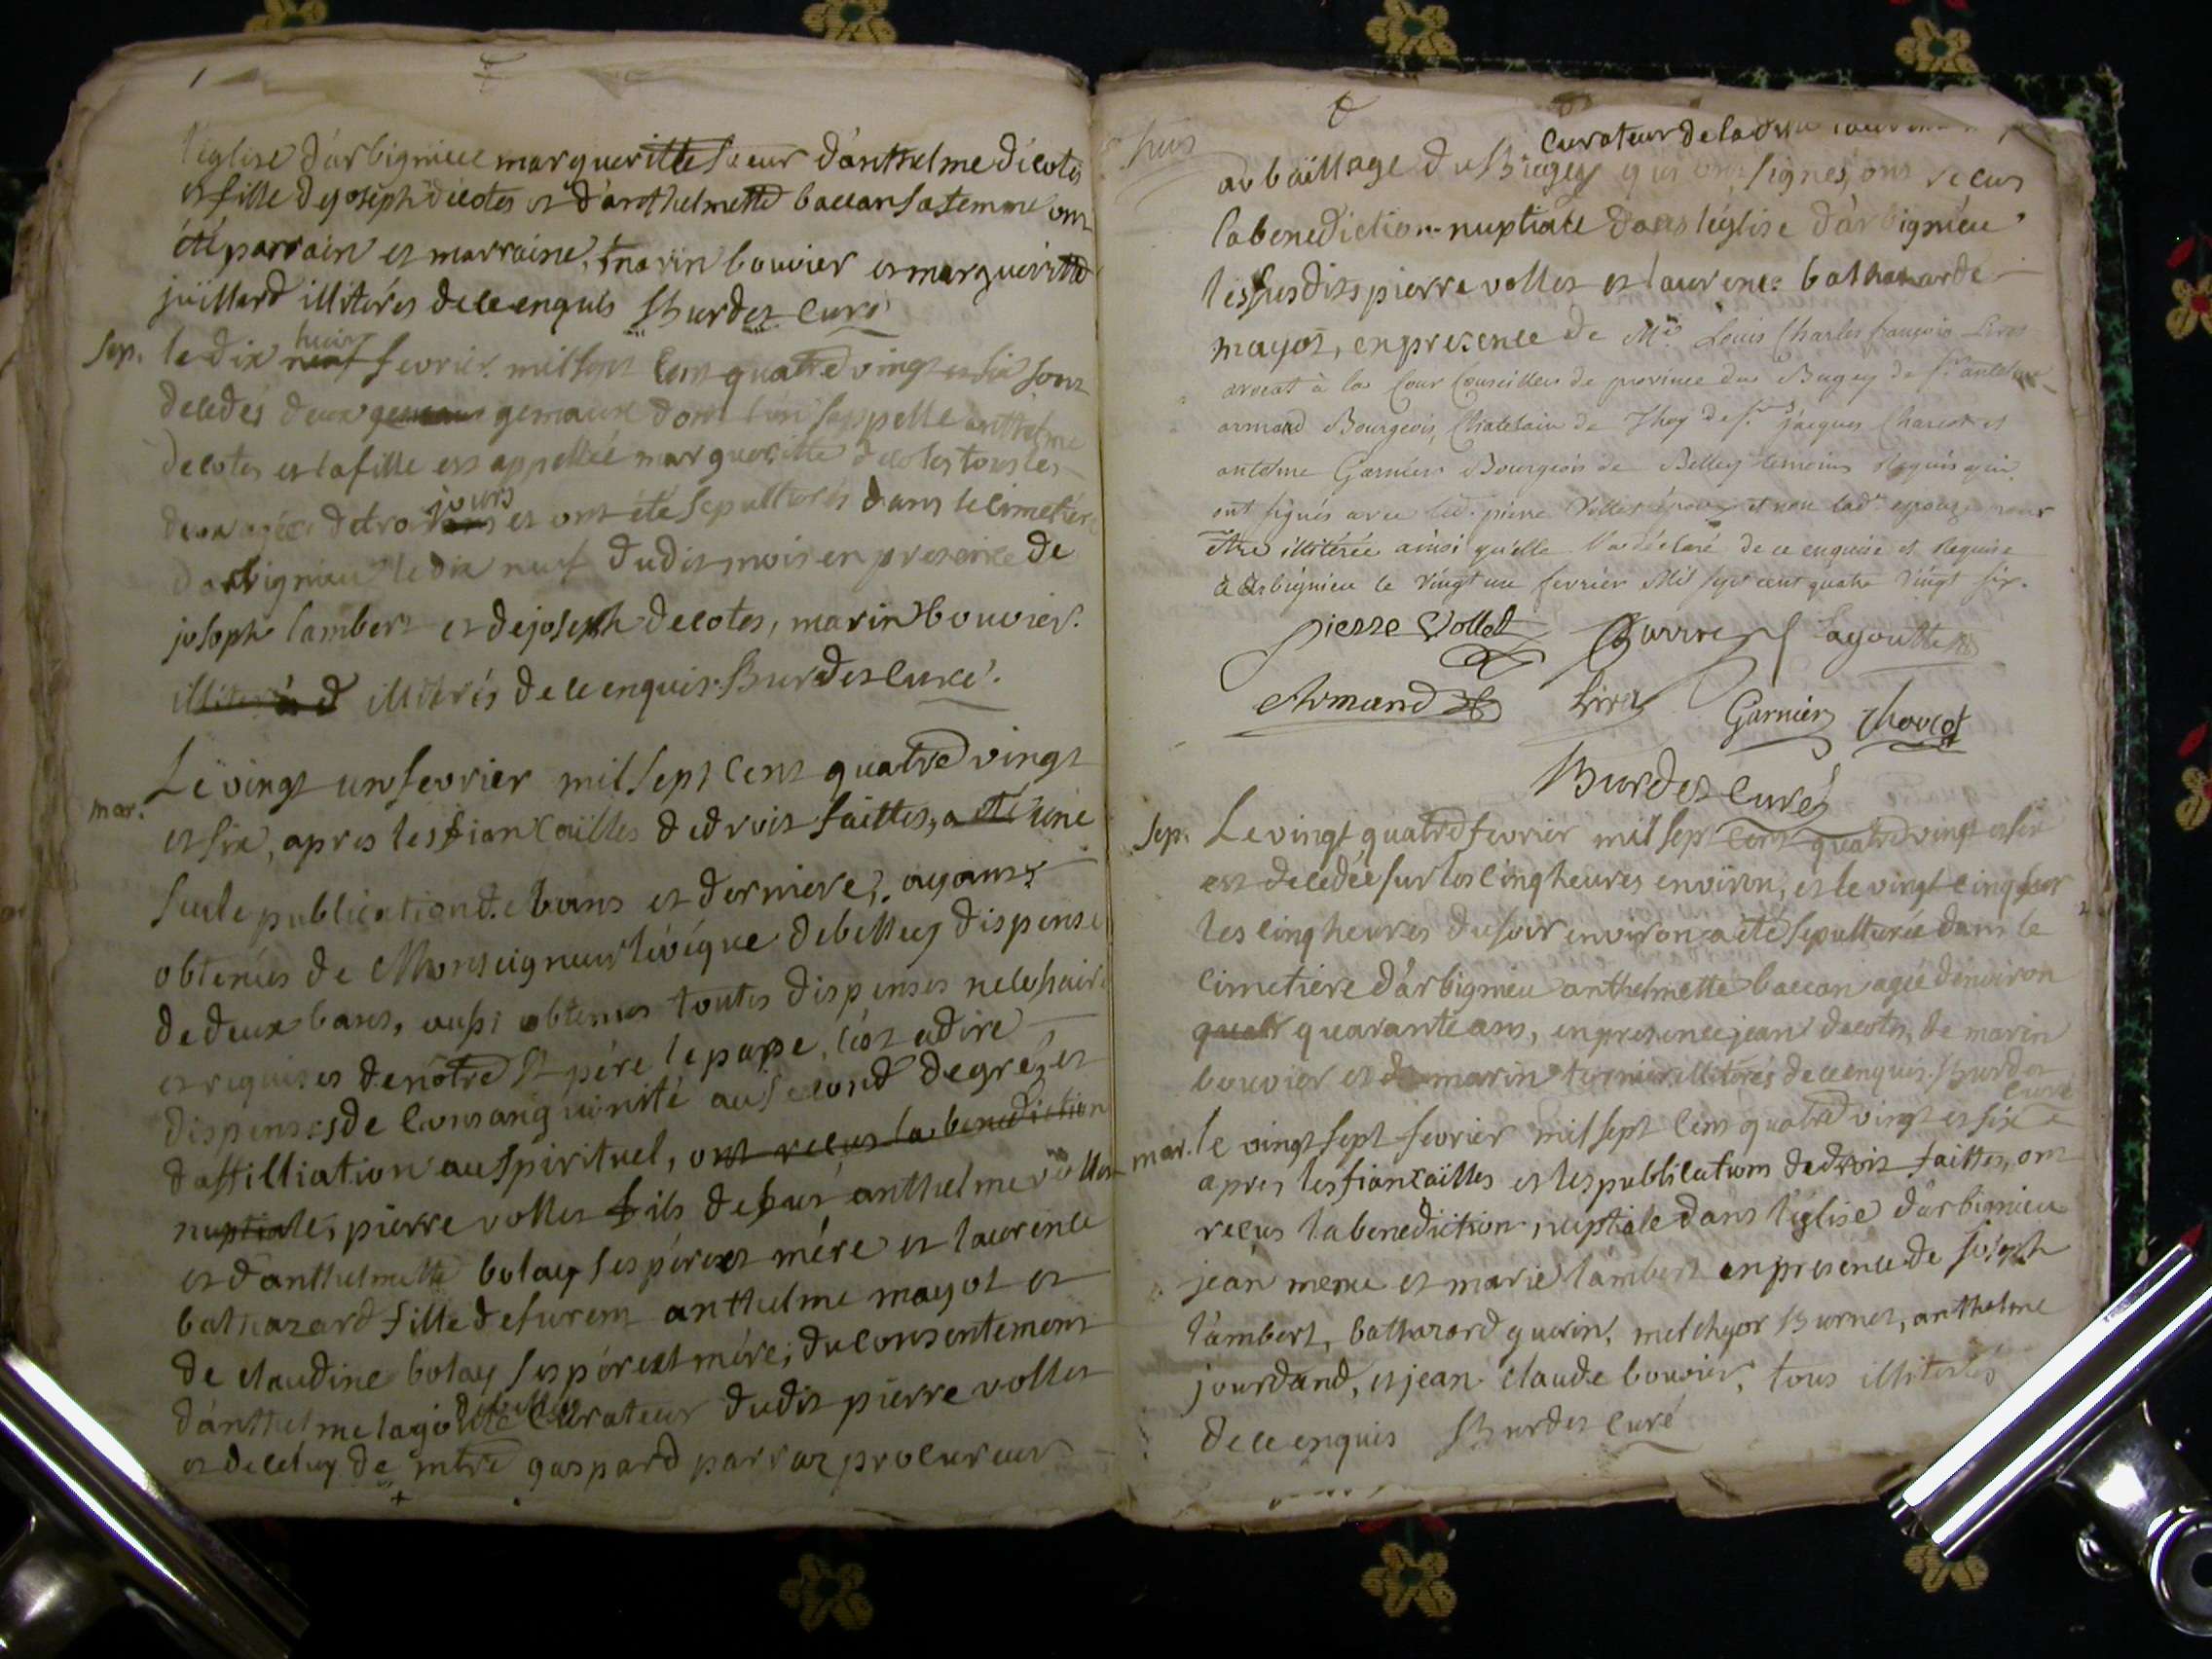 l'église d'arbignieu marqueritte soeur d'anthelme décotes
et fille de joseph décotes et d'anthelmette baccon sa femme ont
été parrain et marraine, marin bouvier et margueritte
juillard illiterés de ce enquis Burdet curé
sep. le dix neuf huit fevrier mil sept cent quatre vingt et six sont
decedés deux gemaux gemaux dont l'un s'appelle anthelme
decotes et la fille est appellée margueritte decotes tous les
deux agées de trois ans jours et ont été sepulturés dans le cimetiere
d'arbignieu le dix neuf dudit mois en presence de
joseph lambert et de joseph decotes, marin bouvier.
illiterés d illiterés de ce enquis Burdet curé.
mar. Le vingt un fevrier mil sept cent quatre vingt
et six, apres les fiancailles de droit faittes, a été une
seule publication de bans et derniere, ayants
obtenues de Monseigneur l'évéque de belley dispense
de deux bans, aussi obtenus toutes dispenses necessaire
et requises de nôtre St père le pape, c'est adire
dispenses de consanguinité au second degré, et
d'affilliation au spirituel, ont recus la benediction
nuptiale, pierre vollet fils de feus anthelme vollet
et d'anthelmette bolay ses pére et mére et laurence
bathazard fille de furent anthelme mayot et
de claudine bolay ses pére et mére; du consentement
d'anthelme lagoutte de belley curateur dudit pierre vollet
et de celuy de mtre gaspard parraz procureur
curateur de la
au baillage du Bugey qui ont signés, ont recus
la benediction nuptiale dans l'église d'arbignieu
les susdits pierre vollet et laurence bathazarde
mayot, en presence de Me. Louis Charles françois Livet
avocat à la Cour Conseiller de province du Bugey de Sr. antelme
armand Bourgeois, Chatelain de Thoy de Sr. jacques Charcot et
antelme Garnier Bourgeois de Belley temoins Requis qui
ont signés avec led. pierre Vollet époux et non lad.e epouze pour
être illitérée ainsi qu'elle l'a déclaré de ce enquise et Requise
à Arbignieu le Vingt un fevrier Mil sept cent quatre Vingt six.
pierre Vollet Parraz Lagoutte
Armand Livet Garnier Charcot
Burdet curé
sep. Le vingt quatre fevrier mil sept cent quatre vingt et six
est decedée sur les cinq heures environ, et le vingt cinq sur
les cinq heures du soir environ a été sepulturée dans le
cimetiere d'arbignieu anthelmette baccon agée d'environ
quatr quarante ans, en presence jean decotes, de marin
bouvier et de marin illiterés de ce enquis. Burdet
curé
mar. le vingt sept fevrier mil sept cent quatre vingt et six
apres les fiancailles et les publications de droit faittes, ont
recus la benediction nuptiale dans l'église d'arbignieu
jean mene et marie lambert en presence de joseph
lambert, bathazard guerin, melchyor Burnet, anthelme
jourdand, et jean claude bouvier, tous illiterés
de ce enquis Burdet curé